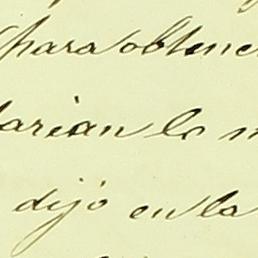 para obtene
darian lo m
dijo en la